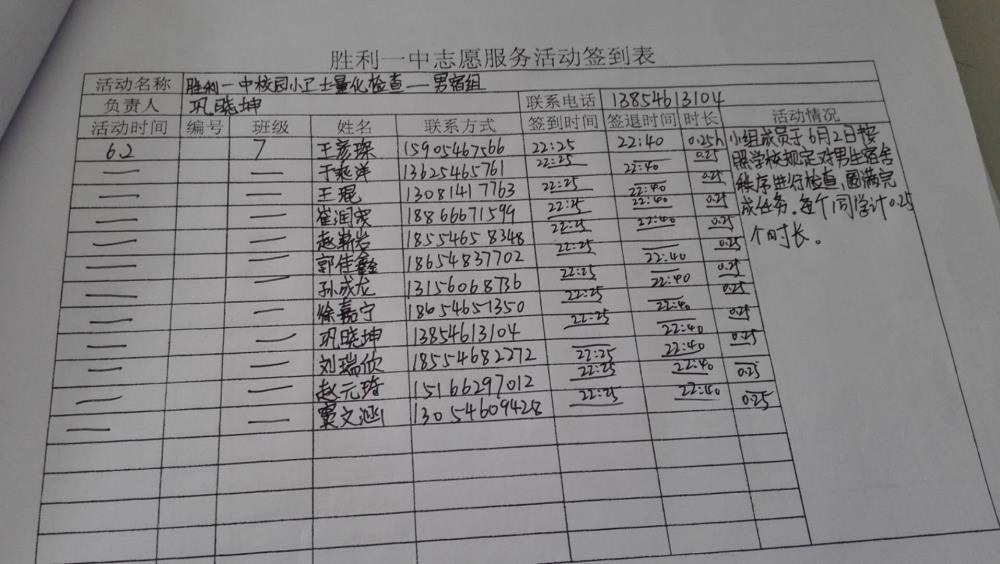 胜利一中志愿服务活动签到表
活动名称 胜利一中校园小卫士量化检查——男宿组
负责人 巩晓坤 联系电话 13854613104
活动时间 编号 班级 姓名 联系方式 签到时间 签退时间 时长 活动情况
6.2 7 王彦琛 15905467566 22:25 22:40 0.25h 小组成员于6月2日按
一 一 于乘洋 13625465761 22:25 22:40 0.25 照学校规定对男生宿舍
一 一 王琨 13081417763 22:25 22:40 0.25 秩序进行检查,圆满完
一 一 崔润 18866671599 22:25 22:40 0.25 成任务。每个同学计0.25
一 一 赵崭岩 18554658348 22:25 22:40 0.25 个时长。
一 一 郭佳鑫 18654837702 22:25 22:40 0.25
一 一 孙成龙 13156068736 22:25 22:40 0.25
一 一 徐嘉宁 18654651350 22:25 22:40 0.25
一 一 巩晓坤 13854613104 22:25 22:40 0.25
一 一 刘瑞欣 18554682272 22:25 22:40 0.25
一 一 赵元琦 15166297012 22:25 22:40 0.25
一 一 窦文涵 13054609428 22:25 22:40 0.25